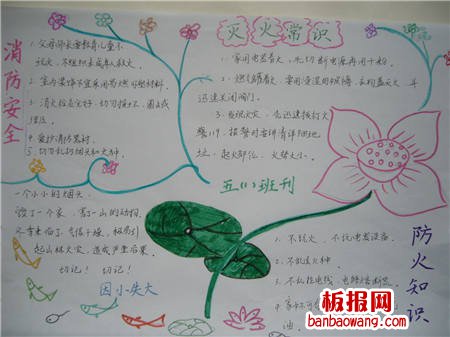 消防安全
1、父母师长要教育儿童不
玩火，不组织未成年人救火。
2、室内装饰不宜采用易燃可燃材料。
3、消火栓
4、爱护消防器材，
5、切勿乱扔烟头和火种
灭火常识
1、家用电器着火，先切断电源再用干粉
2、燃气罐着火，要用浸湿的被褥、衣物盖灭火，并
迅速关闭阀门。
3、发现火灾，应迅速拨打火
警119，报警时要讲清详细地
址、起火部位、火势大小
五（1）班刊
一个小小的烟头，
毁了一个家，害了一山的动物，
冬季来临了，气候干燥，极易引
起山林火灾，造成严重后果，
切记！切记！
因小失大
防火知识
1、不玩火、不玩电器设备。
2、不乱丢火种
3、不乱接电线，电路
4、家
板报网
banbaowang.com